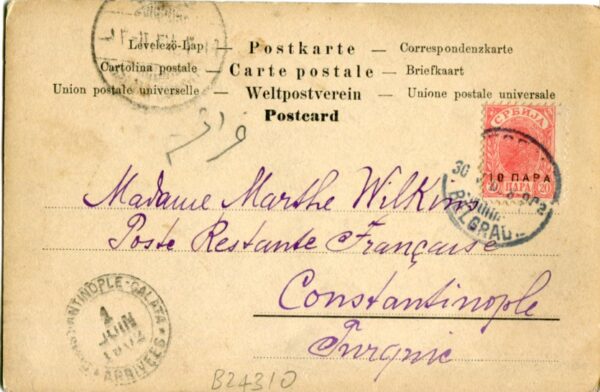 Levelező-Lap — Postkarte — Correspondenzkarte
Cartolina postale — Carte postale — Briefkaart
Union postale universelle — Weltpostverein — Unione postale universale
Postcard
СРБИЈА
10 ПАРА
ПАРА 20
BELGRADE
Madame Marthe
Poste Restante Française
Constantinople
Turquie
CONSTANTINOPLE-GALATA
1
JUIN
1902
ARRIVEES
B24310